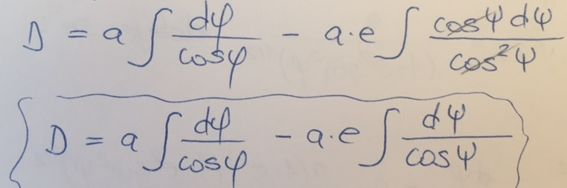 D = a ∫ dφ/cosφ − a·e ∫ cosψ dψ/cos²ψ
D = a ∫ dφ/cosφ − a·e ∫ dψ/cosψ